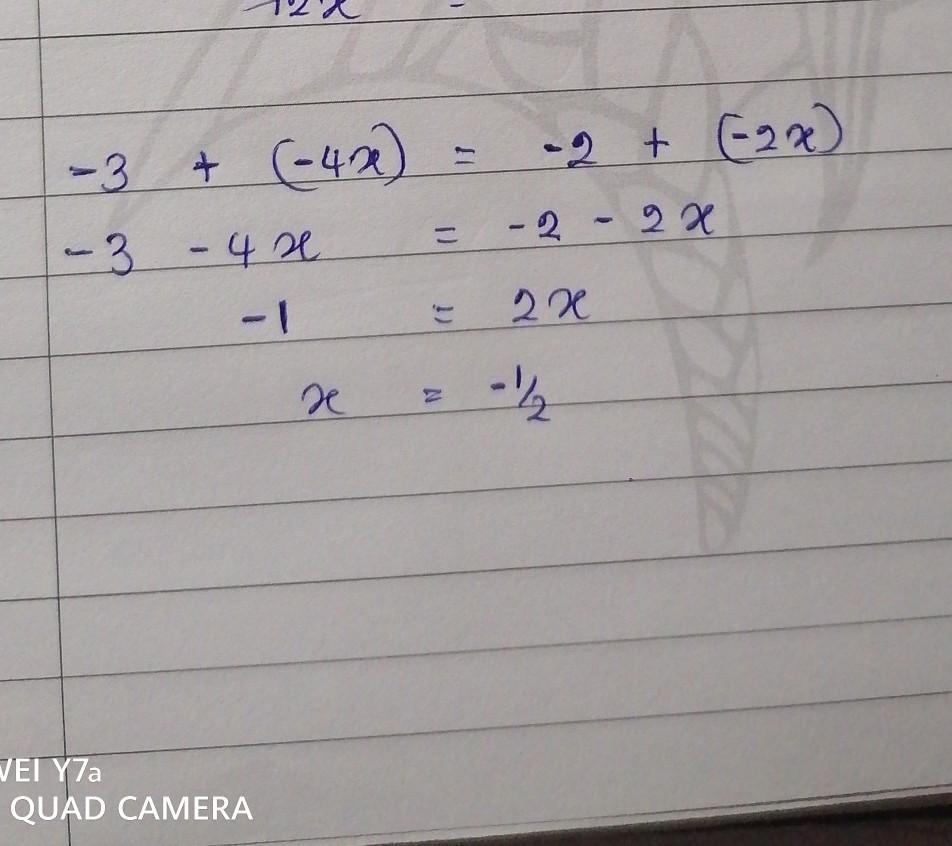 12x -
-3 + (-4x) = -2 + (-2x)
-3 - 4x = -2 - 2x
-1 = 2x
x = -1/2
WEI Y7a
QUAD CAMERA